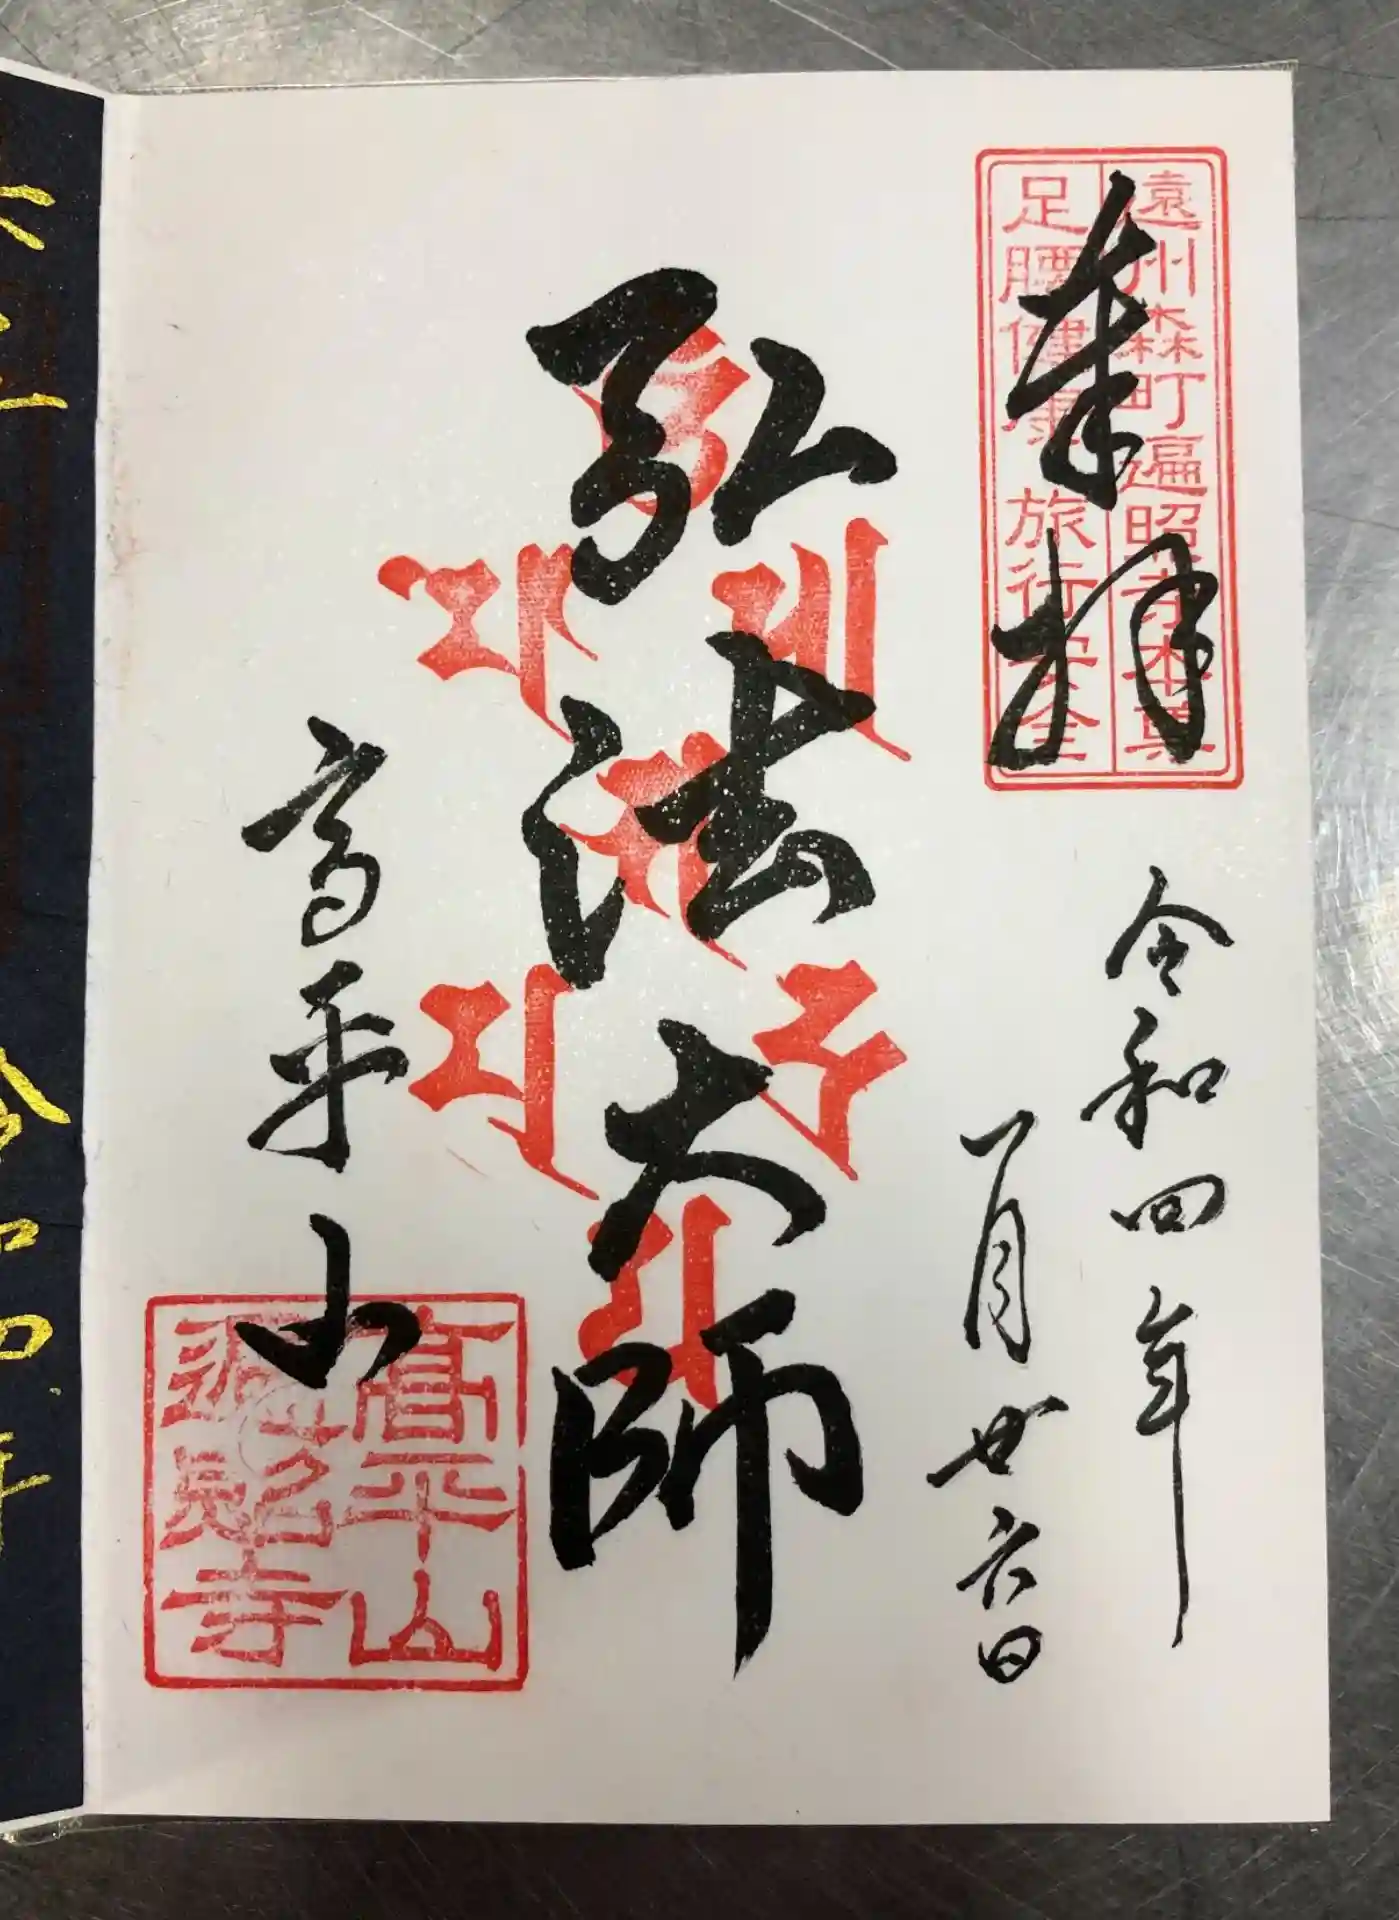 遠州森町遍照寺本尊
足腰健康 旅行安全
奉拝
令和四年
一月廿六日
弘法大師
高平山
高平山
遍照寺
令和四年